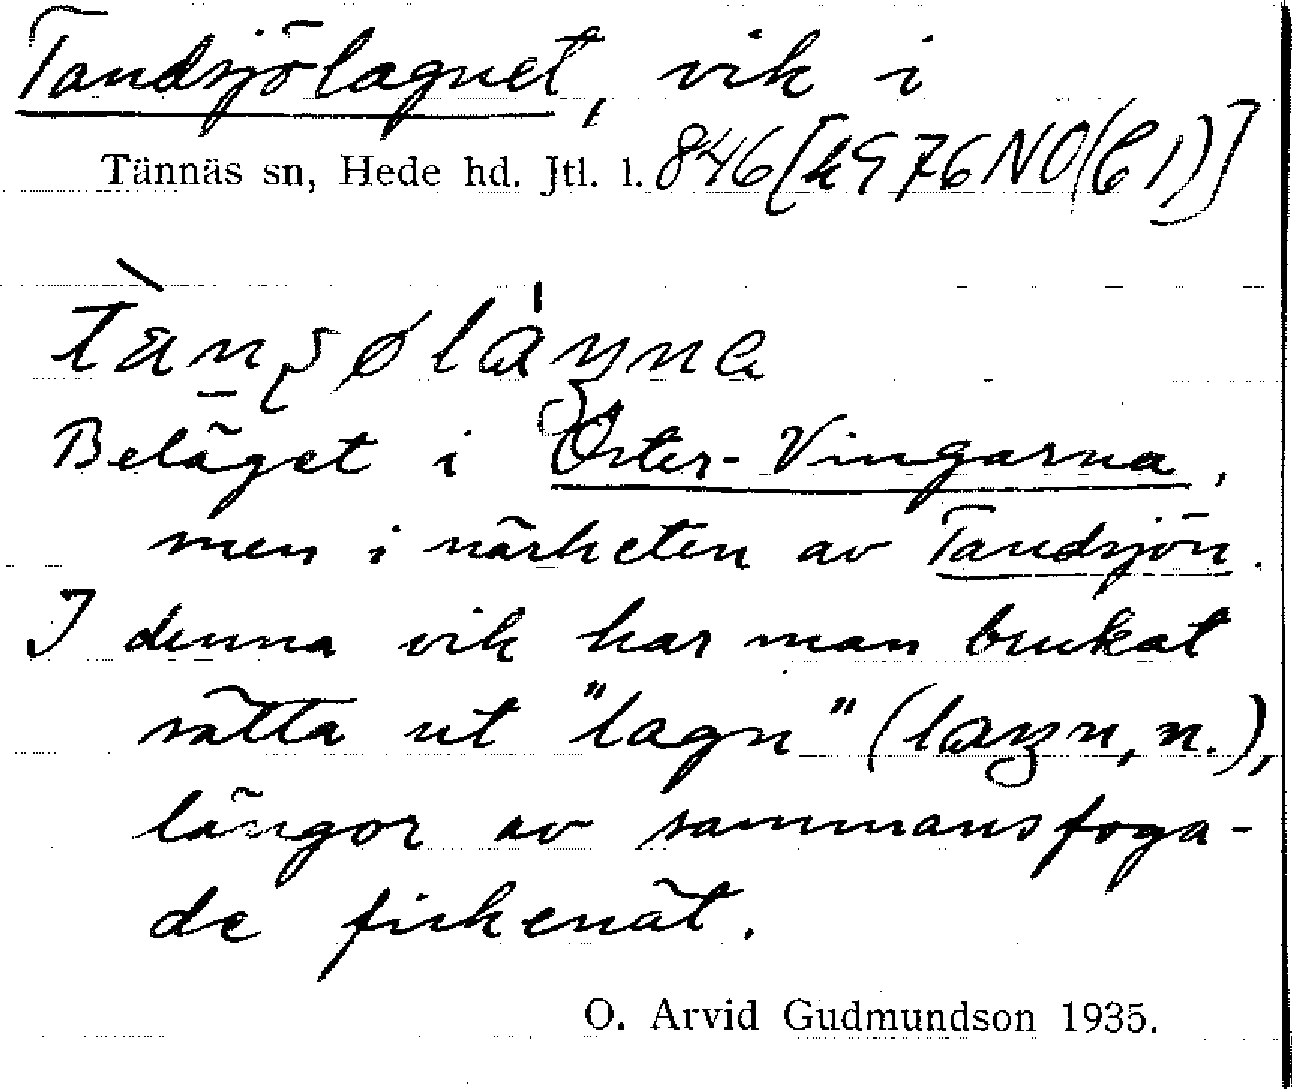 Tandsjölagnet, vik i
Tännäs sn, Hede hd. Jtl. l. 846 [k976NO(C1)]
Beläget i Öster-Vingarna,
men i närheten av Tandsjön.
I denna vik har man brukat
sätta ut "lagn" (laŋn, n.),
längor av sammansfoga-
de fiskenät.
O. Arvid Gudmundson 1935.